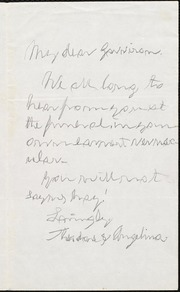 My dear Garrison.
We all long to
hear from you at
the funeral in your
own earnest vernac
ular.
You will not
say us nay!
Lovingly
Theodore & Angelina